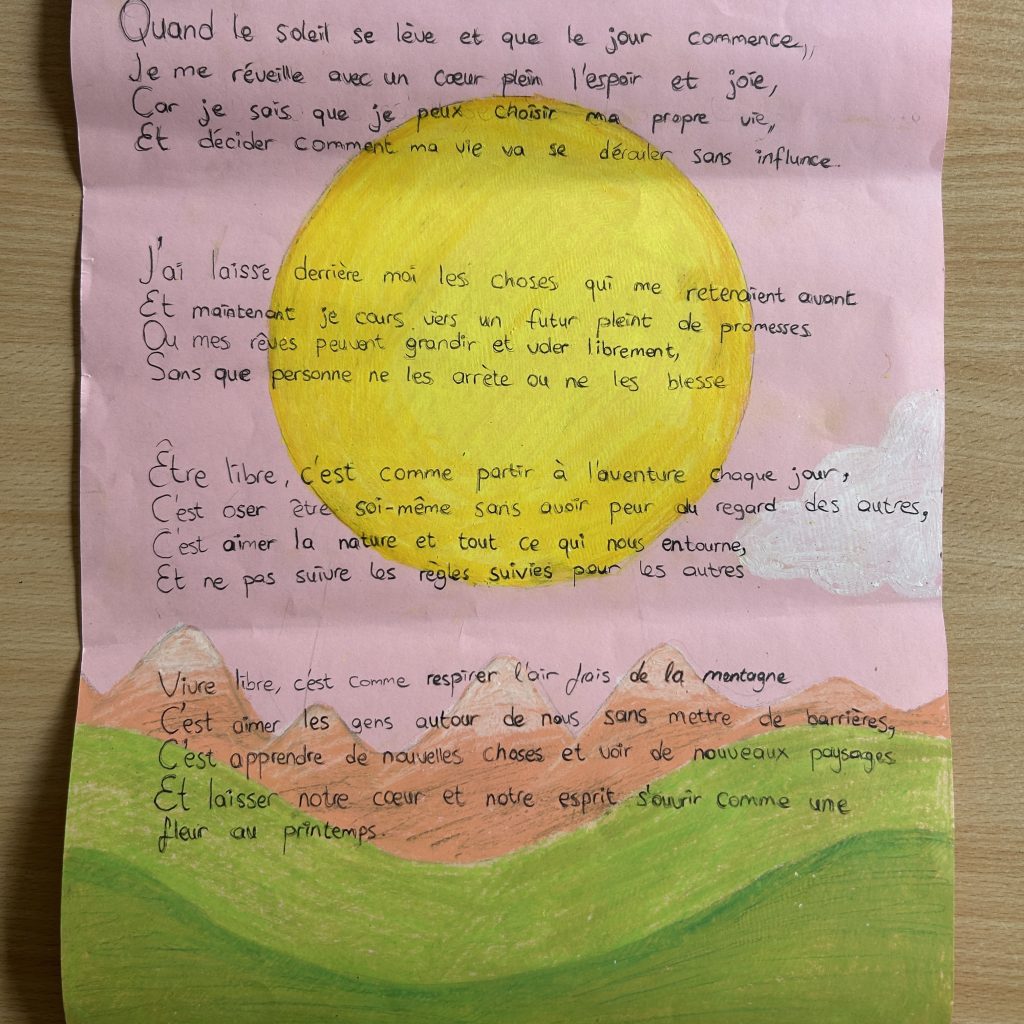 Quand le soleil se lève et que le jour commence,,
Je me réveille avec un cœur plein l'espoir et joie,
Car je sais que je peux choisir ma propre vie,,
Et décider comment ma vie va se dérouler sans influnce.
J'ai laisse derrière moi les choses qui me retenaient avant
Et maintenant je cours vers un futur pleint de promesses
Ou mes rêves peuvent grandir et voler librement,
Sans que personne ne les arrète ou ne les blesse
Être libre, c'est comme partir à l'aventure chaque jour,
C'est oser être soi-même sans avoir peur du regard des autres,
C'est aimer la nature et tout ce qui nous entourne,
Et ne pas suivre les règles suivies pour les autres
Vivre libre, c'est comme respirer l'air frais de la montagne
C'est aimer les gens autour de nous sans mettre de barrières,
C'est apprendre de nouvelles choses et voir de nouveaux paysages
Et laisser notre cœur et notre esprit s'ouvrir comme une
fleur au printemps.